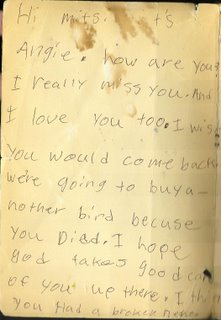 Hi mits. t's
Angie. how are you?
I really miss you. And
I love you too. I wis
you would come back
we're going to buy a-
nother bird becuse
you Died. I hope
god takes good car
of you up there. I thi
you Had a broken